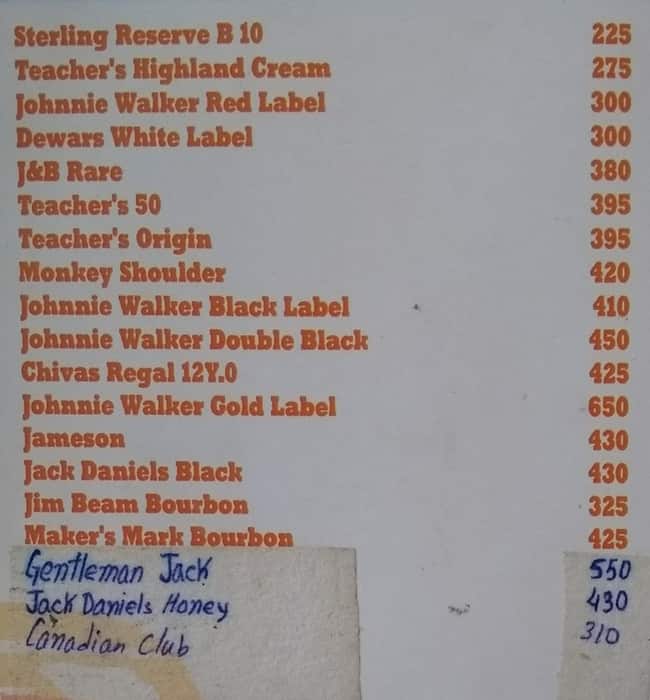 Sterling Reserve B 10 225
Teacher's Highland Cream 275
Johnnie Walker Red Label 300
Dewars White Label 300
J&B Rare 380
Teacher's 50 395
Teacher's Origin 395
Monkey Shoulder 420
Johnnie Walker Black Label 410
Johnnie Walker Double Black 450
Chivas Regal 12Y.0 425
Johnnie Walker Gold Label 650
Jameson 430
Jack Daniels Black 430
Jim Beam Bourbon 325
Maker's Mark Bourbon 425
Gentleman Jack 550
Jack Daniels Honey 430
Canadian Club 310